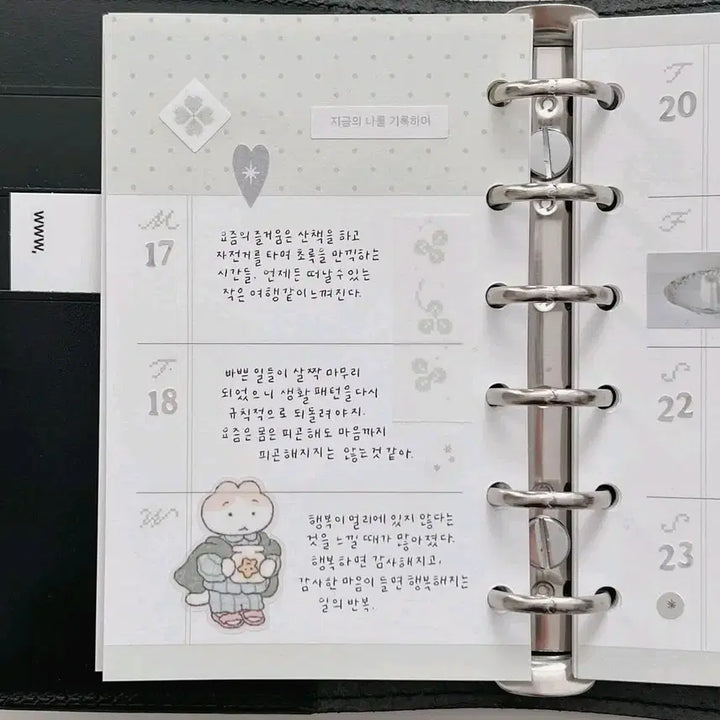 지금의 나를 기록하며
M
17
요즘의 즐거움은 산책을 하고
자전거를 타며 초록을 만끽하는
시간들. 언제든 떠날 수 있는
작은 여행같이 느껴진다.
T
18
바쁜 일들이 살짝 마무리
되었으니 생활 패턴을 다시
규칙적으로 되돌려야지.
요즘은 몸은 피곤해도 마음까지
피곤해지지는 않는 것 같아.
W
행복이 멀리에 있지 않다는
것을 느낄 때가 많아졌다.
행복하면 감사해지고,
감사한 마음이 들면 행복해지는
일의 반복.
www,
T
20
F
S
22
S
23